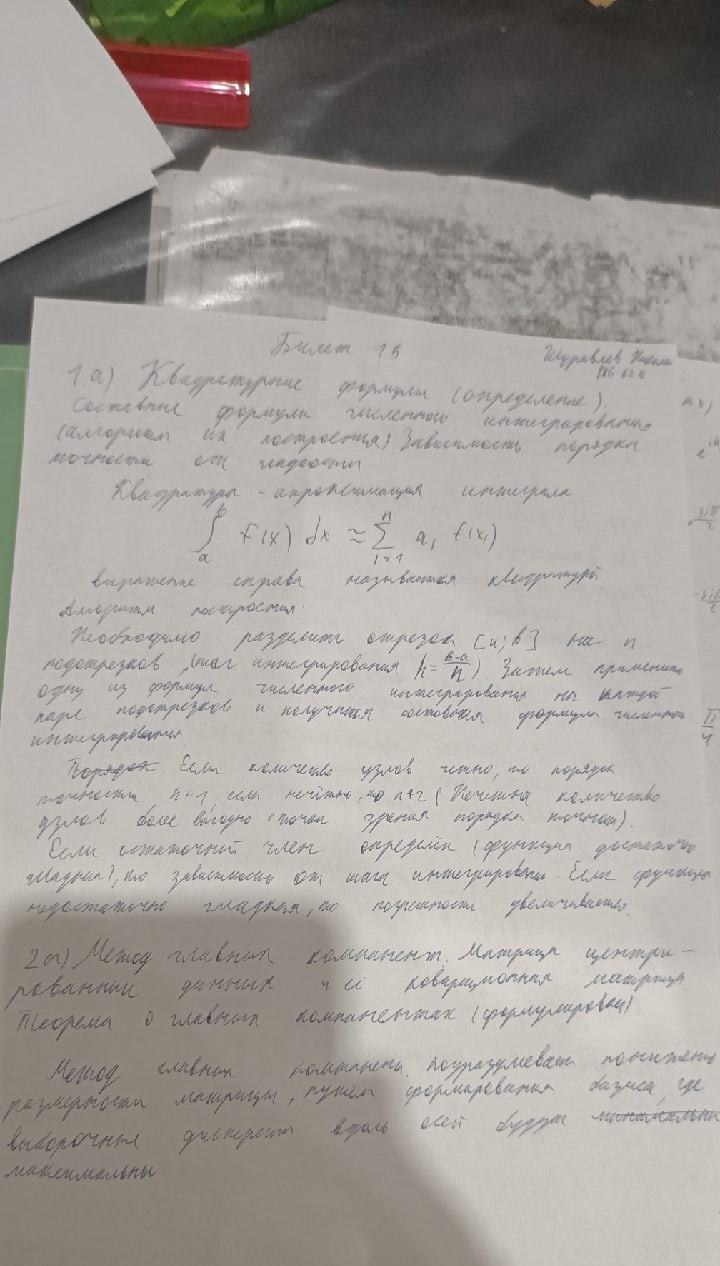 Билет 18
Журавлев Никита
РК6 62Б
1.а) Квадратурные формулы (определение).
Составные формулы численного интегрирования
(алгоритм их построения) Зависимость порядка
точности от гладкости
Квадратуры - апроксимация интеграла
∫ₐᵇ f(x) dx ≈ ∑ᵢ₌₁ⁿ aᵢ f(xᵢ)
выражение справа называется квадратурой
Алгоритм построения.
Необходимо разделить отрезок [a; b] на n
подотрезков (шаг интегрирования h = (b-a)/n). Затем применить
одну из формул численного интегрирования на каждой
паре подотрезков и получится составная формула численного
интегрирования.
Порядок Если количество узлов четно, то порядок
точности n+1, если нечётно, то n+2 (Нечетное количество
узлов более выгодно с точки зрения порядка точности).
Если остаточный член определён (функция достаточно
гладкая), то зависимость от шага интегрирования. Если функция
недостаточно гладкая, то погрешность увеличивается.
2а) Метод главных компонент. Матрица центри-
рованных данных и её ковариационная матрица.
Теорема о главных компонентах (формулировка)
Метод главных компонент подразумевает понижение
размерности матрицы, путём формирования базиса, где
выборочные дисперсии вдоль осей будут минимальны
максимальны